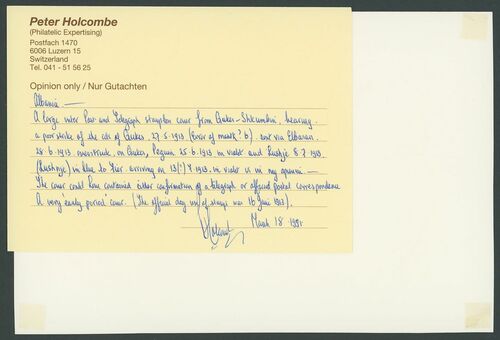 Peter Holcombe
(Philatelic Expertising)
Postfach 1470
6006 Luzern 15
Switzerland
Tel. 041 - 51 56 25
Opinion only / Nur Gutachten
Albania —
A large inter Post and Telegraph stampless cover from Cruken-Shkumbini, bearing
a poor strike of the cds of 27.5.1913 (Error of month? 6). sent via Elbasan.
25.6.1913 overstruck on Peqini 25.6.1913 in violet and Lushje 8.7.1913.
(Lushnje) in blue to Fier arriving on 13(?) 7.1913. in violet is in my opinion —
The cover could have contained either confirmation of a telegraph or official postal correspondence
A very early period cover. (The official day use of stamps was 16 June 1913).
March 18 1991